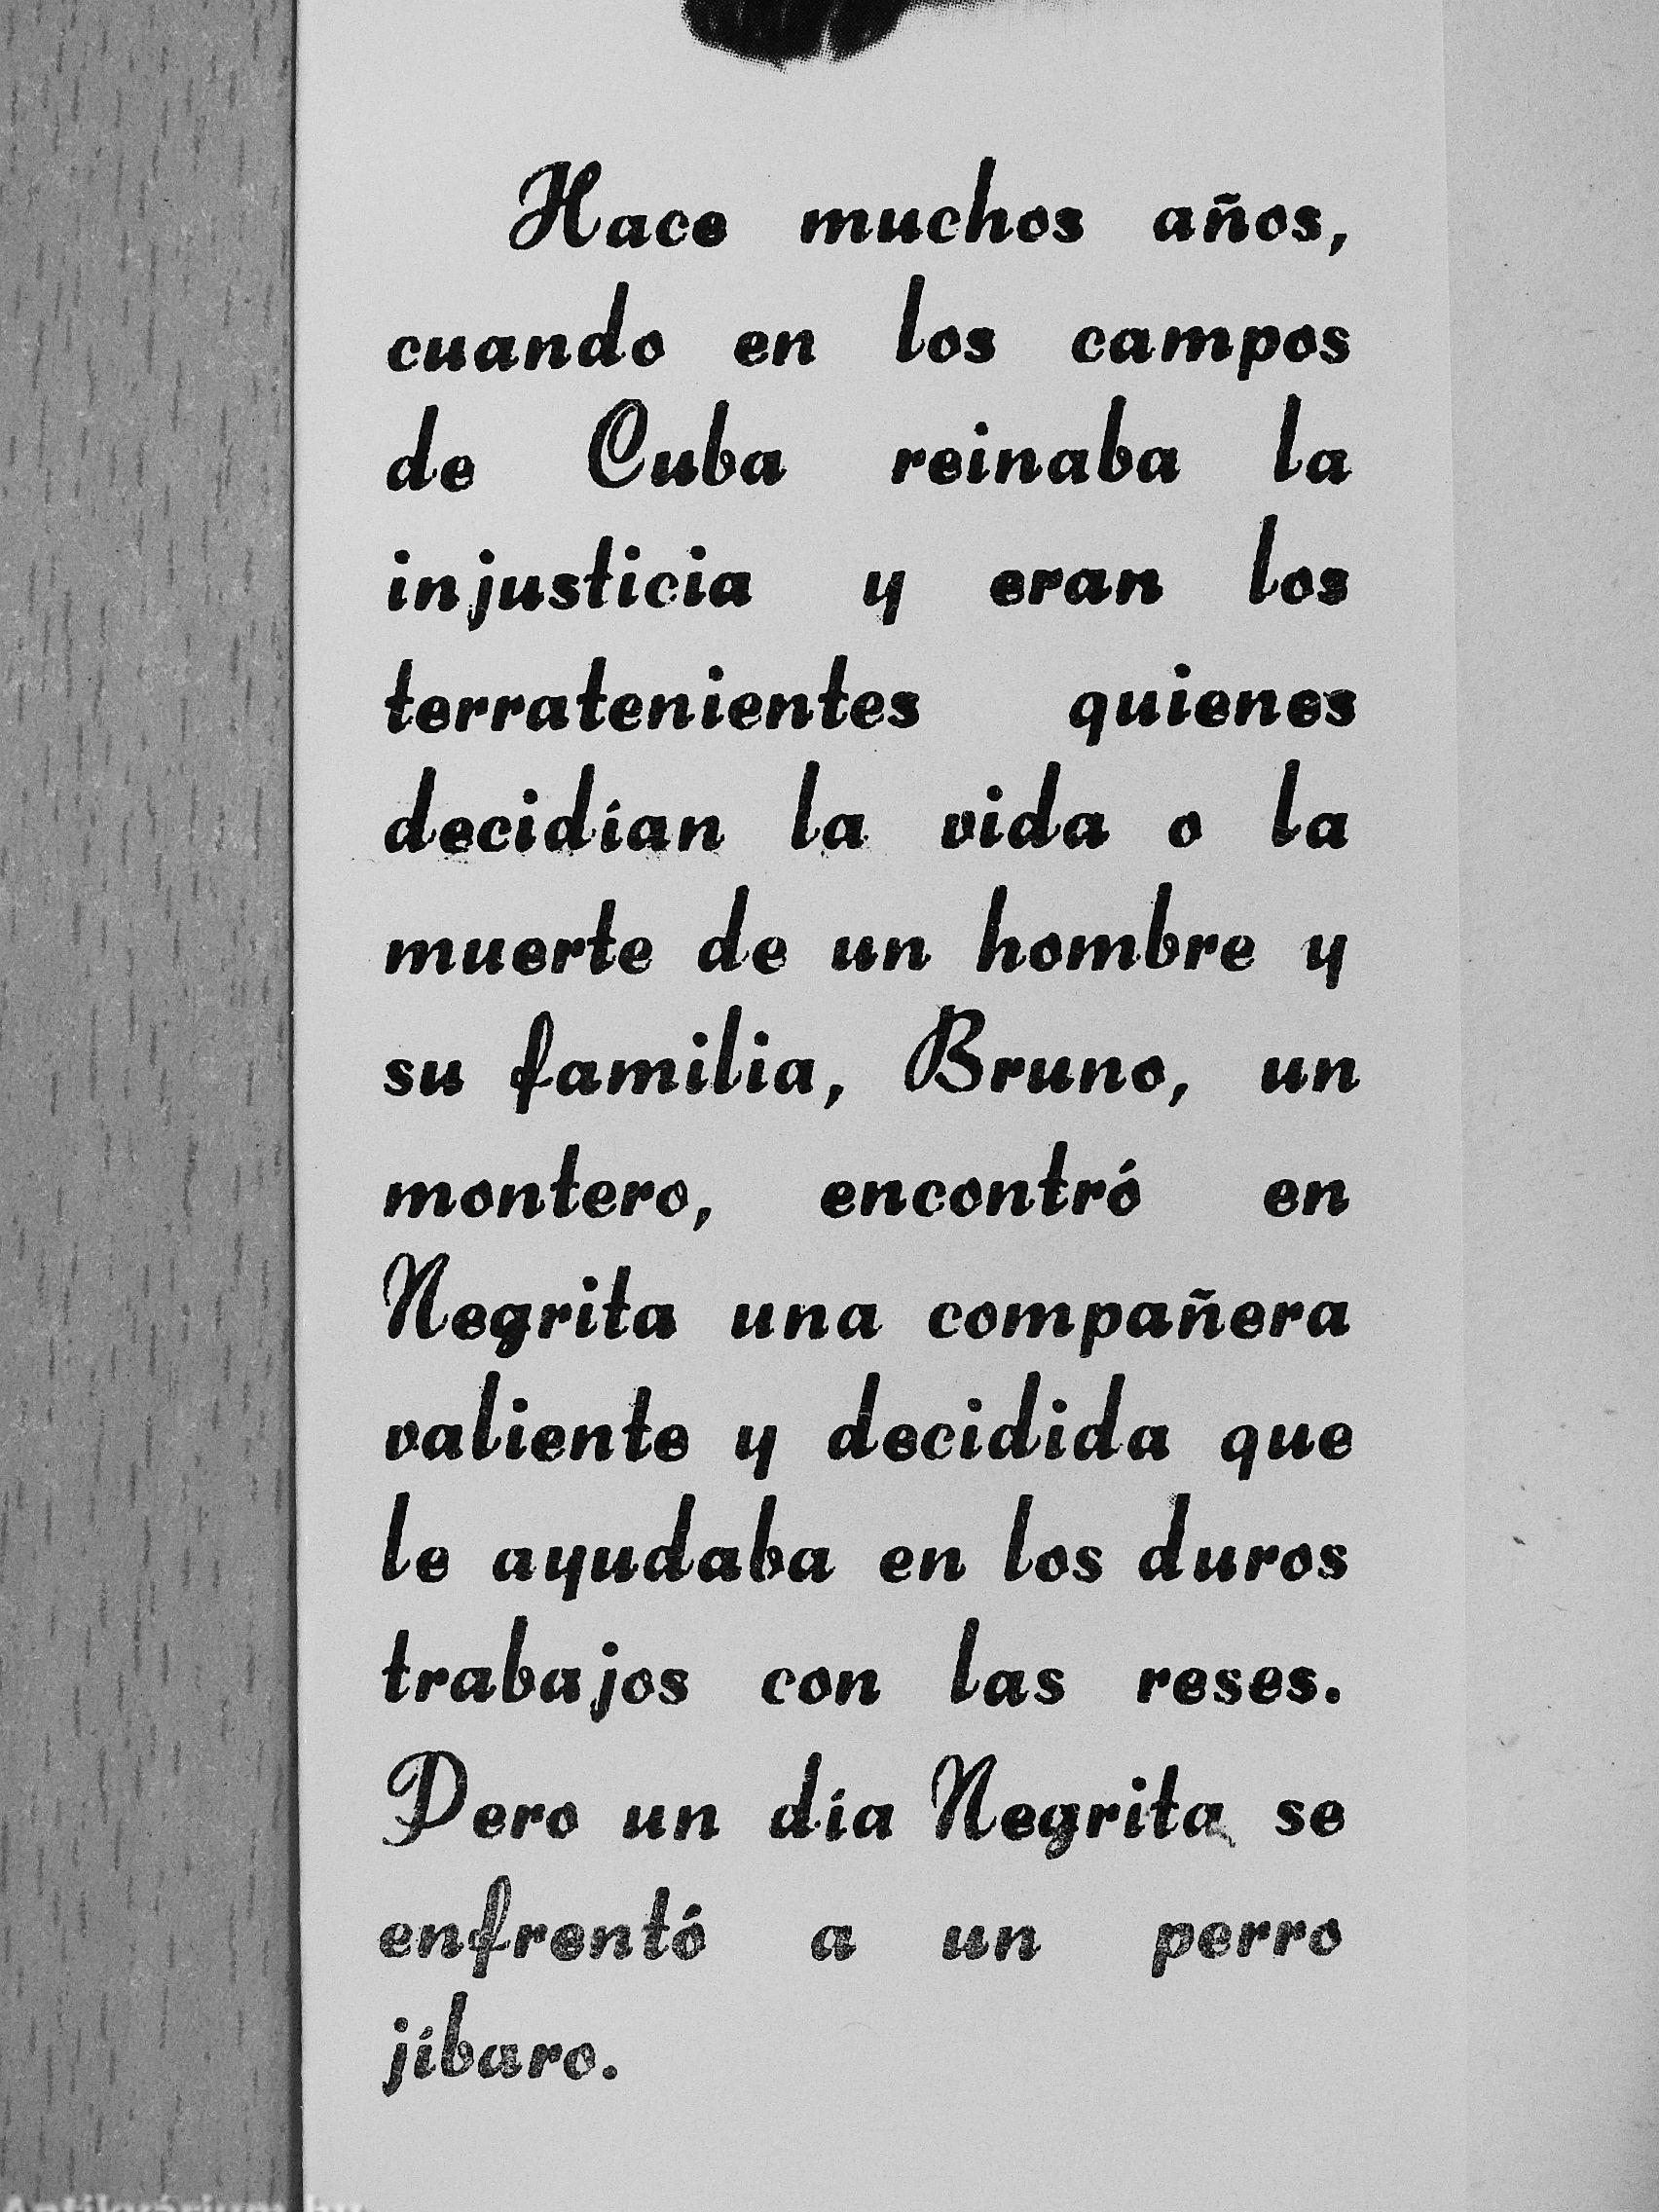 Hace muchos años,
cuando en los campos
de Cuba reinaba la
injusticia y eran los
terratenientes quienes
decidían la vida o la
muerte de un hombre y
su familia, Bruno, un
montero, encontró en
Negrita una compañera
valiente y decidida que
le ayudaba en los duros
trabajos con las reses.
Pero un día Negrita se
enfrentó a un perro
jíbaro.